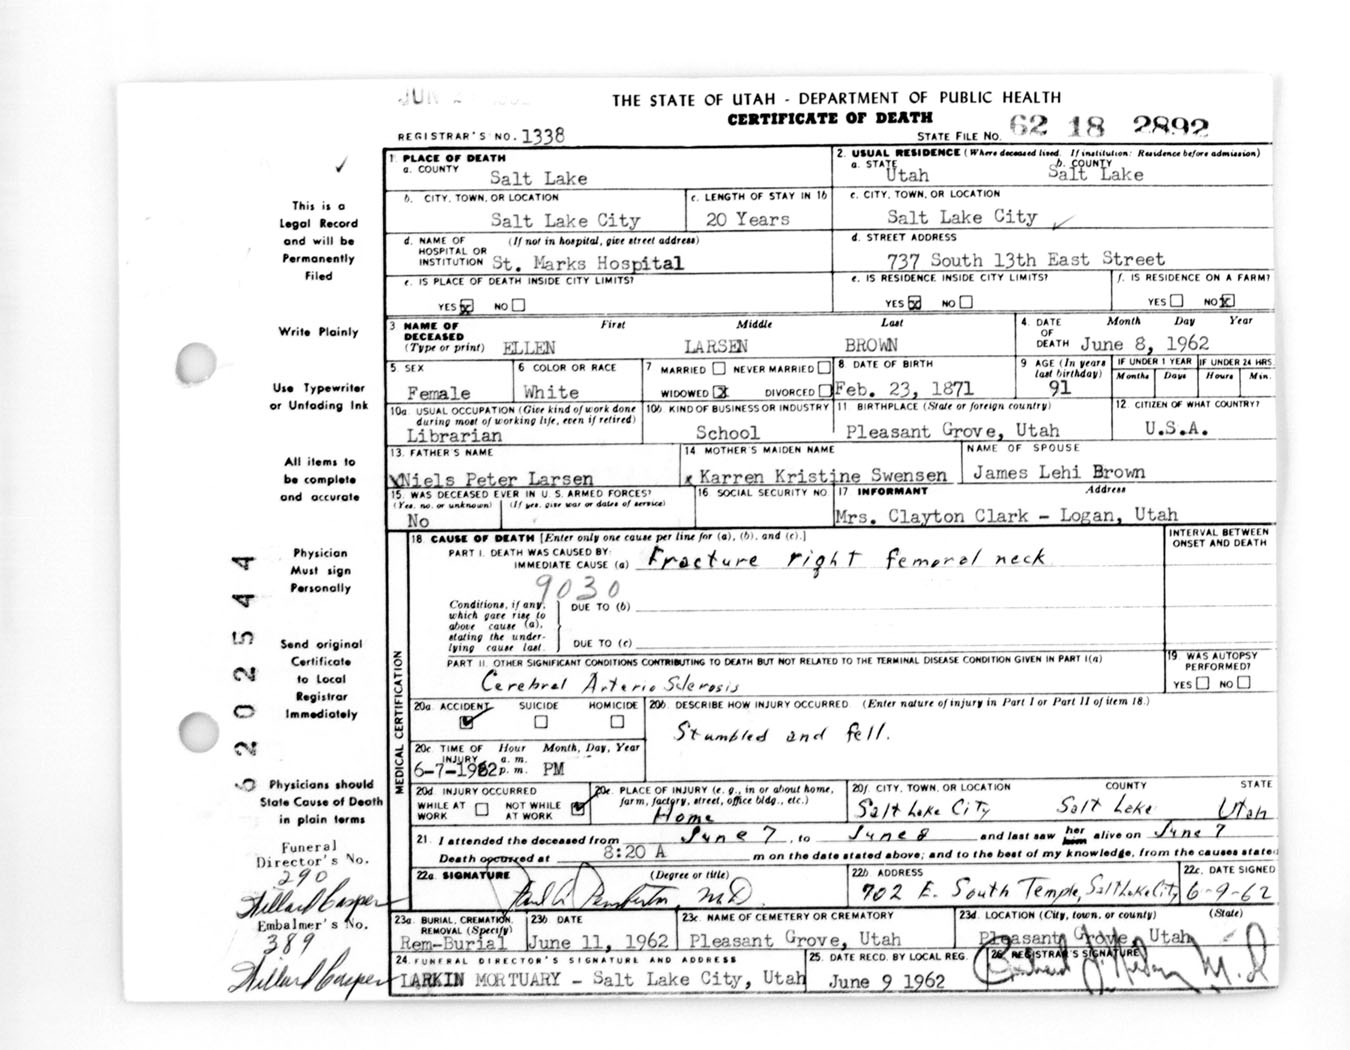 THE STATE OF UTAH - DEPARTMENT OF PUBLIC HEALTH
CERTIFICATE OF DEATH
REGISTRAR'S NO. 1338
STATE FILE NO. 62 18 2892
This is a
Legal Record
and will be
Permanently
Filed
Write Plainly
Use Typewriter
or Unfading Ink
All items to
be complete
and accurate
Physician
Must sign
Personally
Send original
Certificate
to Local
Registrar
Immediately
Physicians should
State Cause of Death
in plain terms
Funeral
Director's No.
290
Willard Casper
Embalmer's No.
389
Willard Casper
6202544
1. PLACE OF DEATH
a. COUNTY
Salt Lake
2. USUAL RESIDENCE (Where deceased lived. If institution: Residence before admission)
a. STATE
Utah
b. COUNTY
Salt Lake
b. CITY, TOWN, OR LOCATION
Salt Lake City
c. LENGTH OF STAY IN 1b
20 Years
c. CITY, TOWN, OR LOCATION
Salt Lake City
d. NAME OF (If not in hospital, give street address)
HOSPITAL OR
INSTITUTION St. Marks Hospital
d. STREET ADDRESS
737 South 13th East Street
e. IS PLACE OF DEATH INSIDE CITY LIMITS?
YES X NO
e. IS RESIDENCE INSIDE CITY LIMITS?
YES X NO
f. IS RESIDENCE ON A FARM?
YES NO X
3 NAME OF DECEASED (Type or print)
First Middle Last
ELLEN LARSEN BROWN
4. DATE OF DEATH
Month Day Year
June 8, 1962
5 SEX
Female
6 COLOR OR RACE
White
7 MARRIED NEVER MARRIED
WIDOWED X DIVORCED
8 DATE OF BIRTH
Feb. 23, 1871
9 AGE (In years last birthday)
91
IF UNDER 1 YEAR
Months Days
IF UNDER 24 HRS
Hours Min.
10a. USUAL OCCUPATION (Give kind of work done
during most of working life, even if retired)
Librarian
10b KIND OF BUSINESS OR INDUSTRY
School
11 BIRTHPLACE (State or foreign country)
Pleasant Grove, Utah
12. CITIZEN OF WHAT COUNTRY?
U.S.A.
13. FATHER'S NAME
Niels Peter Larsen
14 MOTHER'S MAIDEN NAME
Karren Kristine Swensen
NAME OF SPOUSE
James Lehi Brown
15. WAS DECEASED EVER IN U. S. ARMED FORCES?
(Yes, no, or unknown) (If yes, give war or dates of service)
No
16. SOCIAL SECURITY NO.
17 INFORMANT Address
Mrs. Clayton Clark - Logan, Utah
MEDICAL CERTIFICATION
18 CAUSE OF DEATH [Enter only one cause per line for (a), (b), and (c).]
INTERVAL BETWEEN
ONSET AND DEATH
PART I. DEATH WAS CAUSED BY:
IMMEDIATE CAUSE (a) Fracture right femoral neck
9030
Conditions, if any,
which gave rise to
above cause (a),
stating the under-
lying cause last.
DUE TO (b)
DUE TO (c)
PART II. OTHER SIGNIFICANT CONDITIONS CONTRIBUTING TO DEATH BUT NOT RELATED TO THE TERMINAL DISEASE CONDITION GIVEN IN PART I(a)
Cerebral Arterio Sclerosis
19 WAS AUTOPSY
PERFORMED?
YES NO
20a. ACCIDENT SUICIDE HOMICIDE
20b. DESCRIBE HOW INJURY OCCURRED. (Enter nature of injury in Part I or Part II of item 18.)
Stumbled and fell.
20c TIME OF INJURY
Hour Month, Day, Year
a. m.
p. m.
6-7-1962 PM
20d INJURY OCCURRED
WHILE AT WORK
NOT WHILE AT WORK
20e. PLACE OF INJURY (e. g., in or about home,
farm, factory, street, office bldg., etc.)
Home
20f. CITY, TOWN, OR LOCATION COUNTY STATE
Salt Lake City Salt Lake Utah
21. I attended the deceased from June 7, to June 8 and last saw her him alive on June 7
Death occurred at 8:20 A m on the date stated above; and to the best of my knowledge, from the causes stated
22a. SIGNATURE (Degree or title)
M.D.
22b ADDRESS
702 E. South Temple, Salt Lake City
22c. DATE SIGNED
6-9-62
23a. BURIAL, CREMATION,
REMOVAL (Specify)
Rem-Burial
23b DATE
June 11, 1962
23c. NAME OF CEMETERY OR CREMATORY
Pleasant Grove, Utah
23d. LOCATION (City, town, or county) (State)
Pleasant Grove, Utah
24. FUNERAL DIRECTOR'S SIGNATURE AND ADDRESS
LARKIN MORTUARY - Salt Lake City, Utah
25. DATE RECD. BY LOCAL REG.
June 9 1962
26 REGISTRAR'S SIGNATURE
M.D.